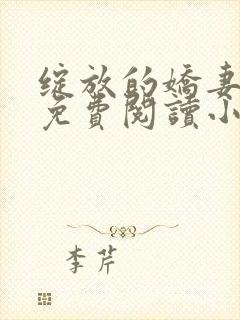 綻放的嬌妻
免費閱讀小
李芹